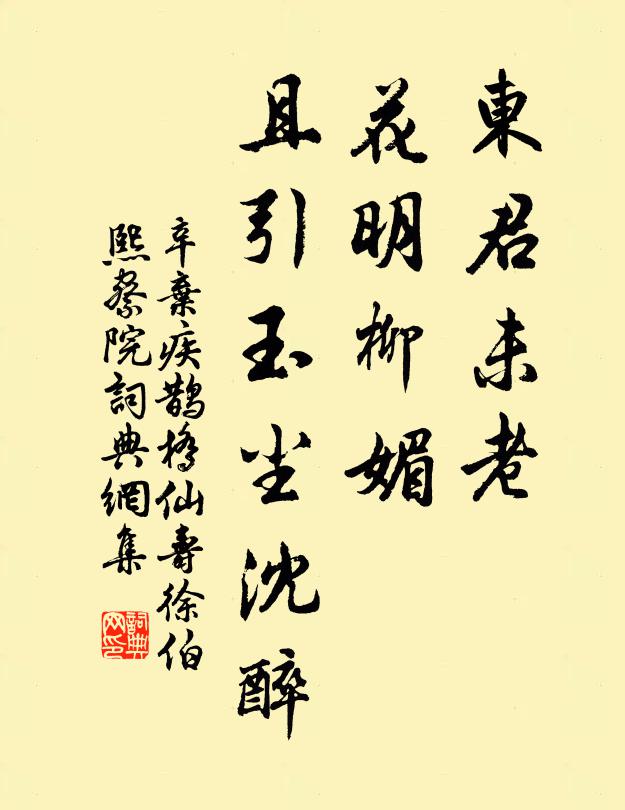 東君未老
花明柳媚
且引玉尘沈醉
辛棄疾鵲橋仙壽徐伯
熙察院詞典網集
詞典
网印